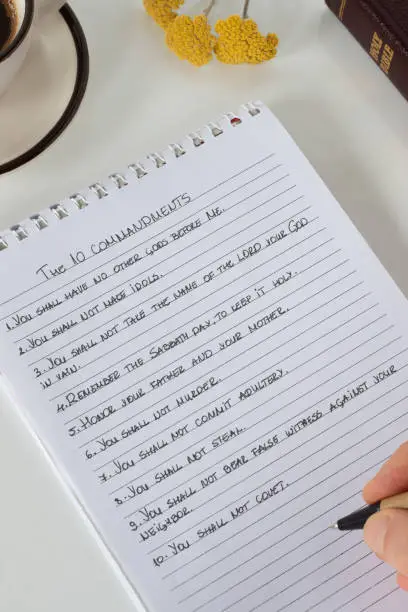 HOLY BIBLE
The 10 COMMANDMENTS
1. YOU SHALL HAVE NO OTHER GODS BEFORE ME.
2. YOU SHALL NOT MAKE IDOLS.
3. YOU SHALL NOT TAKE THE NAME OF THE LORD YOUR GOD
IN VAIN.
4. REMEMBER THE SABBATH DAY, TO KEEP IT HOLY.
5. HONOR YOUR FATHER AND YOUR MOTHER.
6. YOU SHALL NOT MURDER.
7. YOU SHALL NOT COMMIT ADULTERY.
8. YOU SHALL NOT STEAL.
9. YOU SHALL NOT BEAR FALSE WITNESS AGAINST YOUR
NEIGHBOR.
10. YOU SHALL NOT COVET.